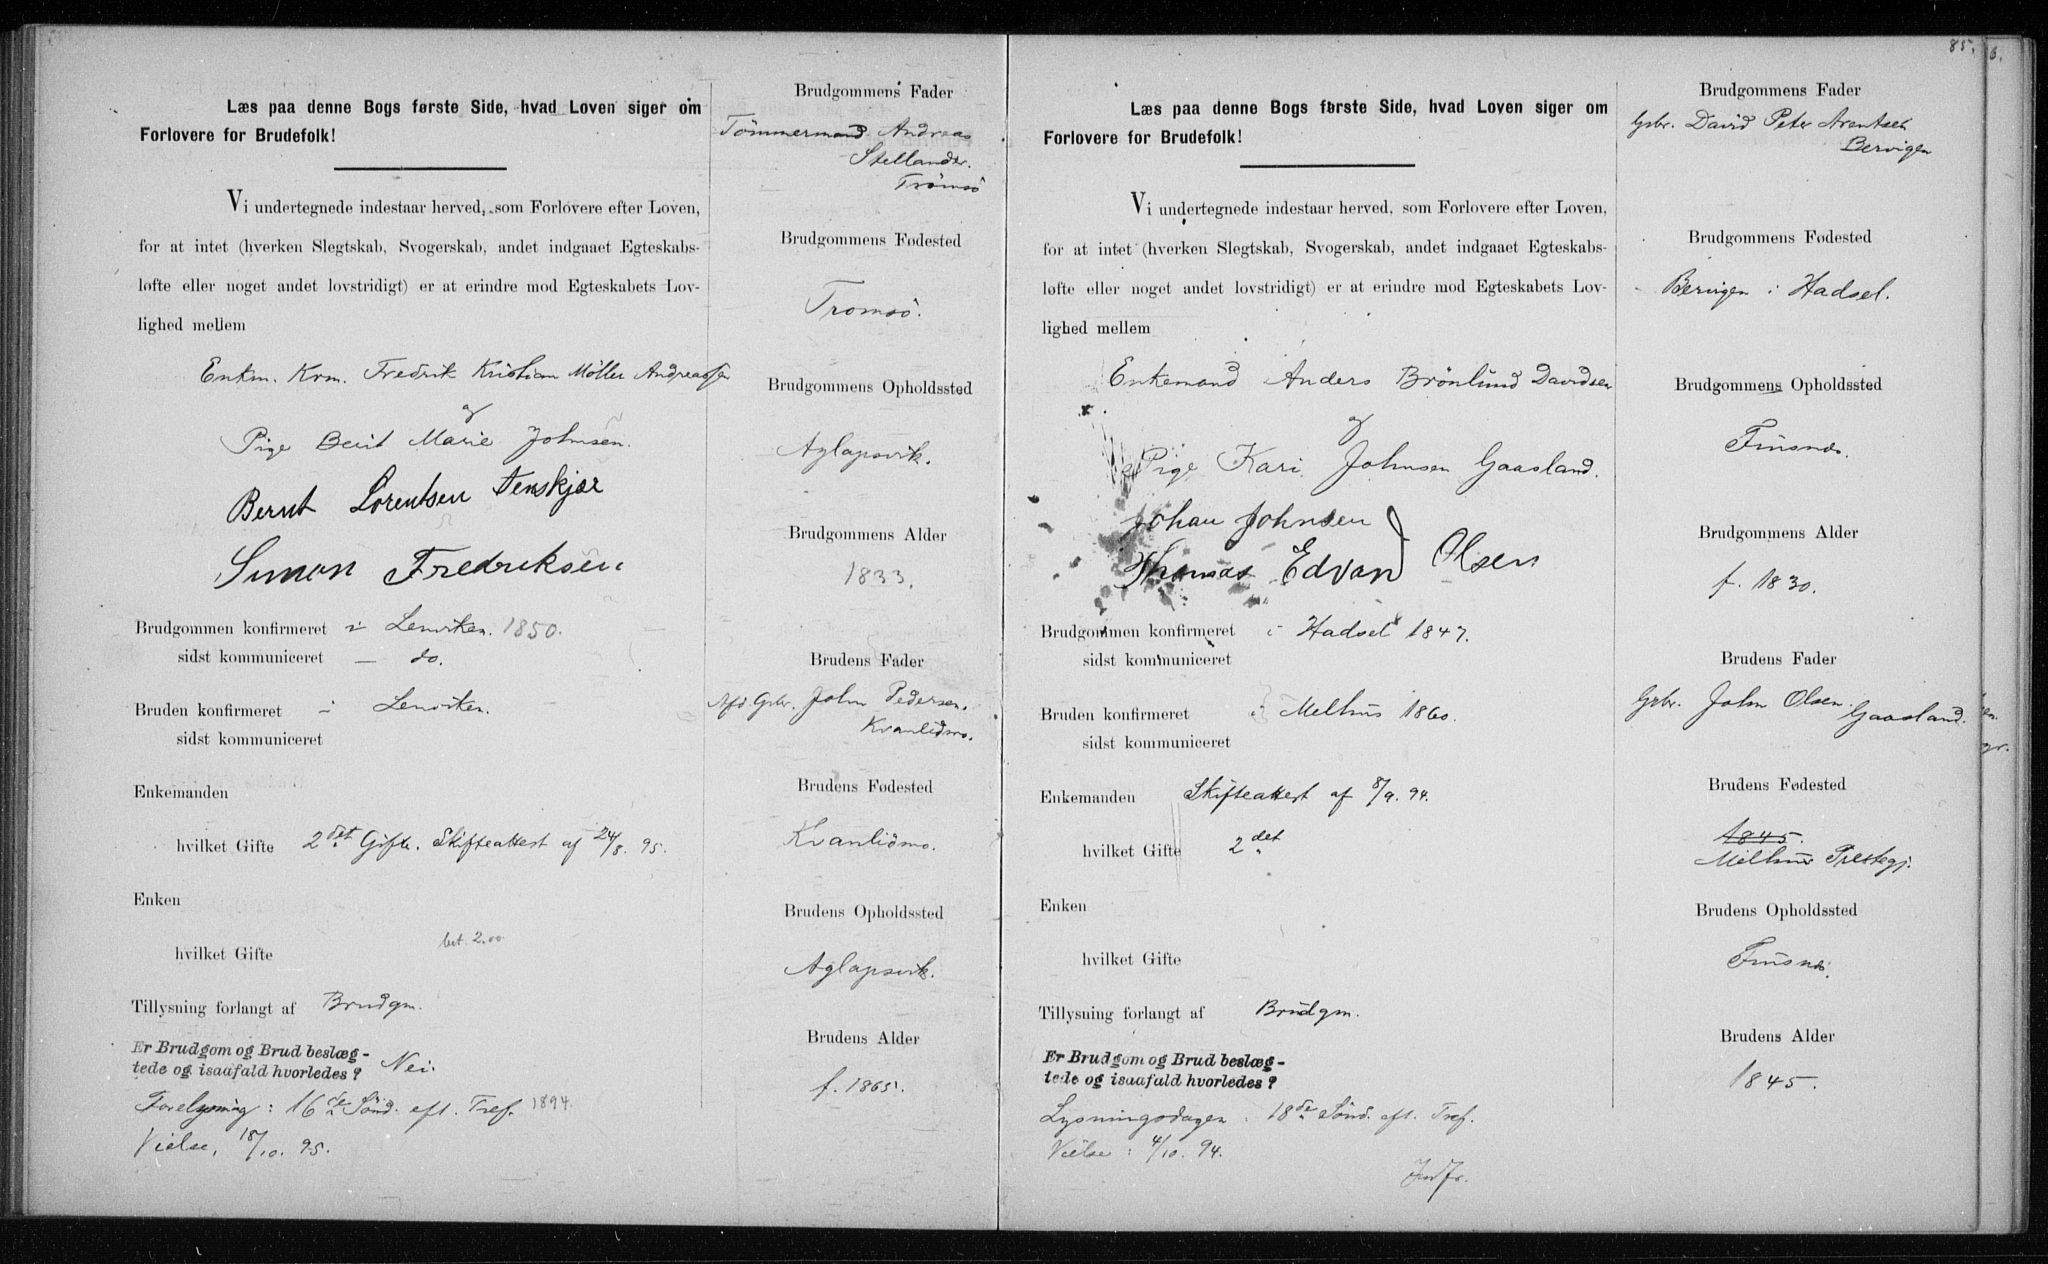 Læs paa denne Bogs første Side, hvad Loven siger om
Forlovere for Brudefolk!
Vi undertegnede indestaar herved, som Forlovere efter Loven,
for at intet (hverken Slegtskab, Svogerskab, andet indgaaet Egteskabs-
løfte eller noget andet lovstridigt) er at erindre mod Egteskabets Lov-
lighed mellem
Enkm. Krm. Fredrik Kristian Møller Andreassen
og
Pige Berit Marie Johnsen.
Bernt Lorentsen Tenskjær
Simon Fredriksen
Brudgommen konfirmeret i Lenviken. 1850.
sidst kommuniceret — do.
Bruden konfirmeret i Lenviken.
sidst kommuniceret
Enkemanden
hvilket Gifte 2det Gifte. Skifteattest af 24/8. 95.
Enken
bet. 2.00
hvilket Gifte
Tillysning forlangt af Brudgm.
Er Brudgom og Brud beslæg-
tede og isaafald hvorledes? Nei.
Forelysning: 16de Sönd. eft. Tref. 1894.
Vielse, 18/10. 95.
Brudgommens Fader
Tömmermand Andreas
Stellander.
Tromsö
Brudgommens Fødested
Tromsö.
Brudgommens Opholdssted
Aglapsvik.
Brudgommens Alder
1833.
Brudens Fader
Afd. Gbr. John Pedersen.
Kvanlidmo.
Brudens Fødested
Kvanlidmo.
Brudens Opholdssted
Aglapsvik.
Brudens Alder
f. 1865.
85. 6.
Læs paa denne Bogs første Side, hvad Loven siger om
Forlovere for Brudefolk!
Vi undertegnede indestaar herved, som Forlovere efter Loven,
for at intet (hverken Slegtskab, Svogerskab, andet indgaaet Egteskabs-
løfte eller noget andet lovstridigt) er at erindre mod Egteskabets Lov-
lighed mellem
Enkemand Anders Brönlund Davidsen
og
Pige Kari Johnsen Gaasland.
Johan Johnsen
Thomas Edvard Olsen
Brudgommen konfirmeret i Hadsel 1847.
sidst kommuniceret
Bruden konfirmeret i Melhus 1860.
sidst kommuniceret
Enkemanden Skifteattest af 8/9. 94.
hvilket Gifte 2det
Enken
hvilket Gifte
Tillysning forlangt af Brudgm.
Er Brudgom og Brud beslæg-
tede og isaafald hvorledes?
Lysningsdagen: 18de Sönd. eft. Tref.
Vielse: 4/10. 94.
Brudgommens Fader
Gbr. David Peter Arentsen
Bervigen
Brudgommens Fødested
Bervigen i Hadsel.
Brudgommens Opholdssted
Finsnæs.
Brudgommens Alder
f. 1830.
Brudens Fader
Gbr. John Olsen
Gaasland.
Brudens Fødested
1845.
Melhus Prestegj.
Brudens Opholdssted
Finsnæs.
Brudens Alder
1845.